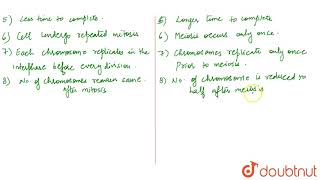 5) Less time to complete.
6) Cell undergo repeated mitosis
7) Each chromosome replicates in the
interphase before every division.
8) No. of chromosomes remain same
after mitosis.
5) Longer time to complete
6) Meiosis occurs only once.
7) Chromosomes replicate only once
Prior to meiosis.
8) No. of chromosome is reduced to
half after meiosis
doubtnut